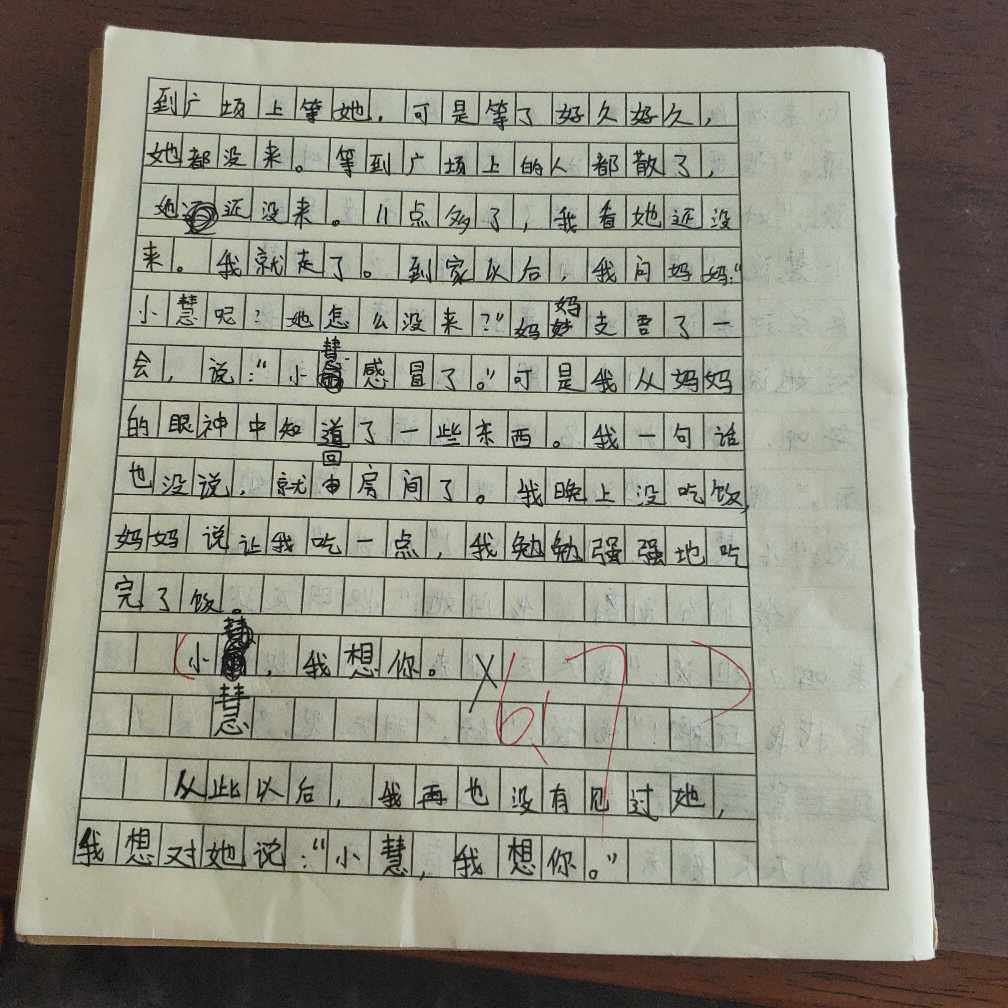 到广场上等她，可是等了好久好久，
她都没来。等到广场上的人都散了，
她还没来。11点多了，我看她还没
来。我就走了。到家以后，我问妈妈："
小慧呢？她怎么没来？"妈妈支吾了一
会，说："小慧感冒了。"可是我从妈妈
的眼神中知道了一些东西。我一句话
也没说，就回房间了。我晚上没吃饭，
妈妈说让我吃一点，我勉勉强强地吃
完了饭。
（小慧，我想你。
6.7
从此以后，我再也没有见过她，
我想对她说："小慧，我想你。"